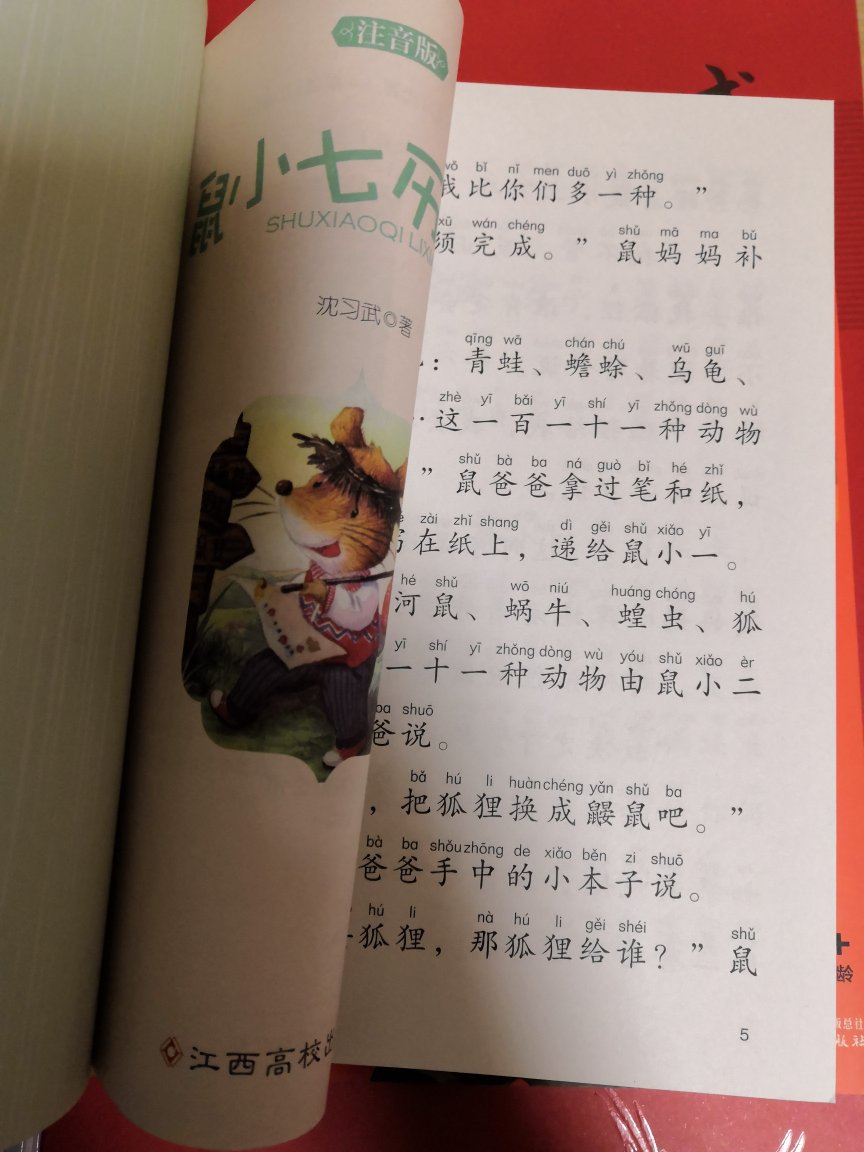 注音版
鼠小七
SHUXIAOQI
沈习武◎著
江西高校出
wǒ bǐ nǐ men duō yì zhǒng
我比你们多一种。”
xū wán chéng shǔ mā ma bǔ
须完成。”鼠妈妈补
qīng wā chán chú wū guī
：青蛙、蟾蜍、乌龟、
zhè yī bǎi yī shí yī zhǒng dòng wù
这一百一十一种动物
shǔ bà ba ná guò bǐ hé zhǐ
”鼠爸爸拿过笔和纸，
zài zhǐ shang dì gěi shǔ xiǎo yī
写在纸上，递给鼠小一。
hé shǔ wō niú huáng chóng hú
河鼠、蜗牛、蝗虫、狐
yī shí yī zhǒng dòng wù yóu shǔ xiǎo èr
一十一种动物由鼠小二
ba shuō
爸说。
bǎ hú li huàn chéng yǎn shǔ ba
，把狐狸换成鼹鼠吧。”
bà ba shǒu zhōng de xiǎo běn zi shuō
爸爸手中的小本子说。
hú li nà hú li gěi shéi shǔ
狐狸，那狐狸给谁？”鼠
5
龄
版总社
版社